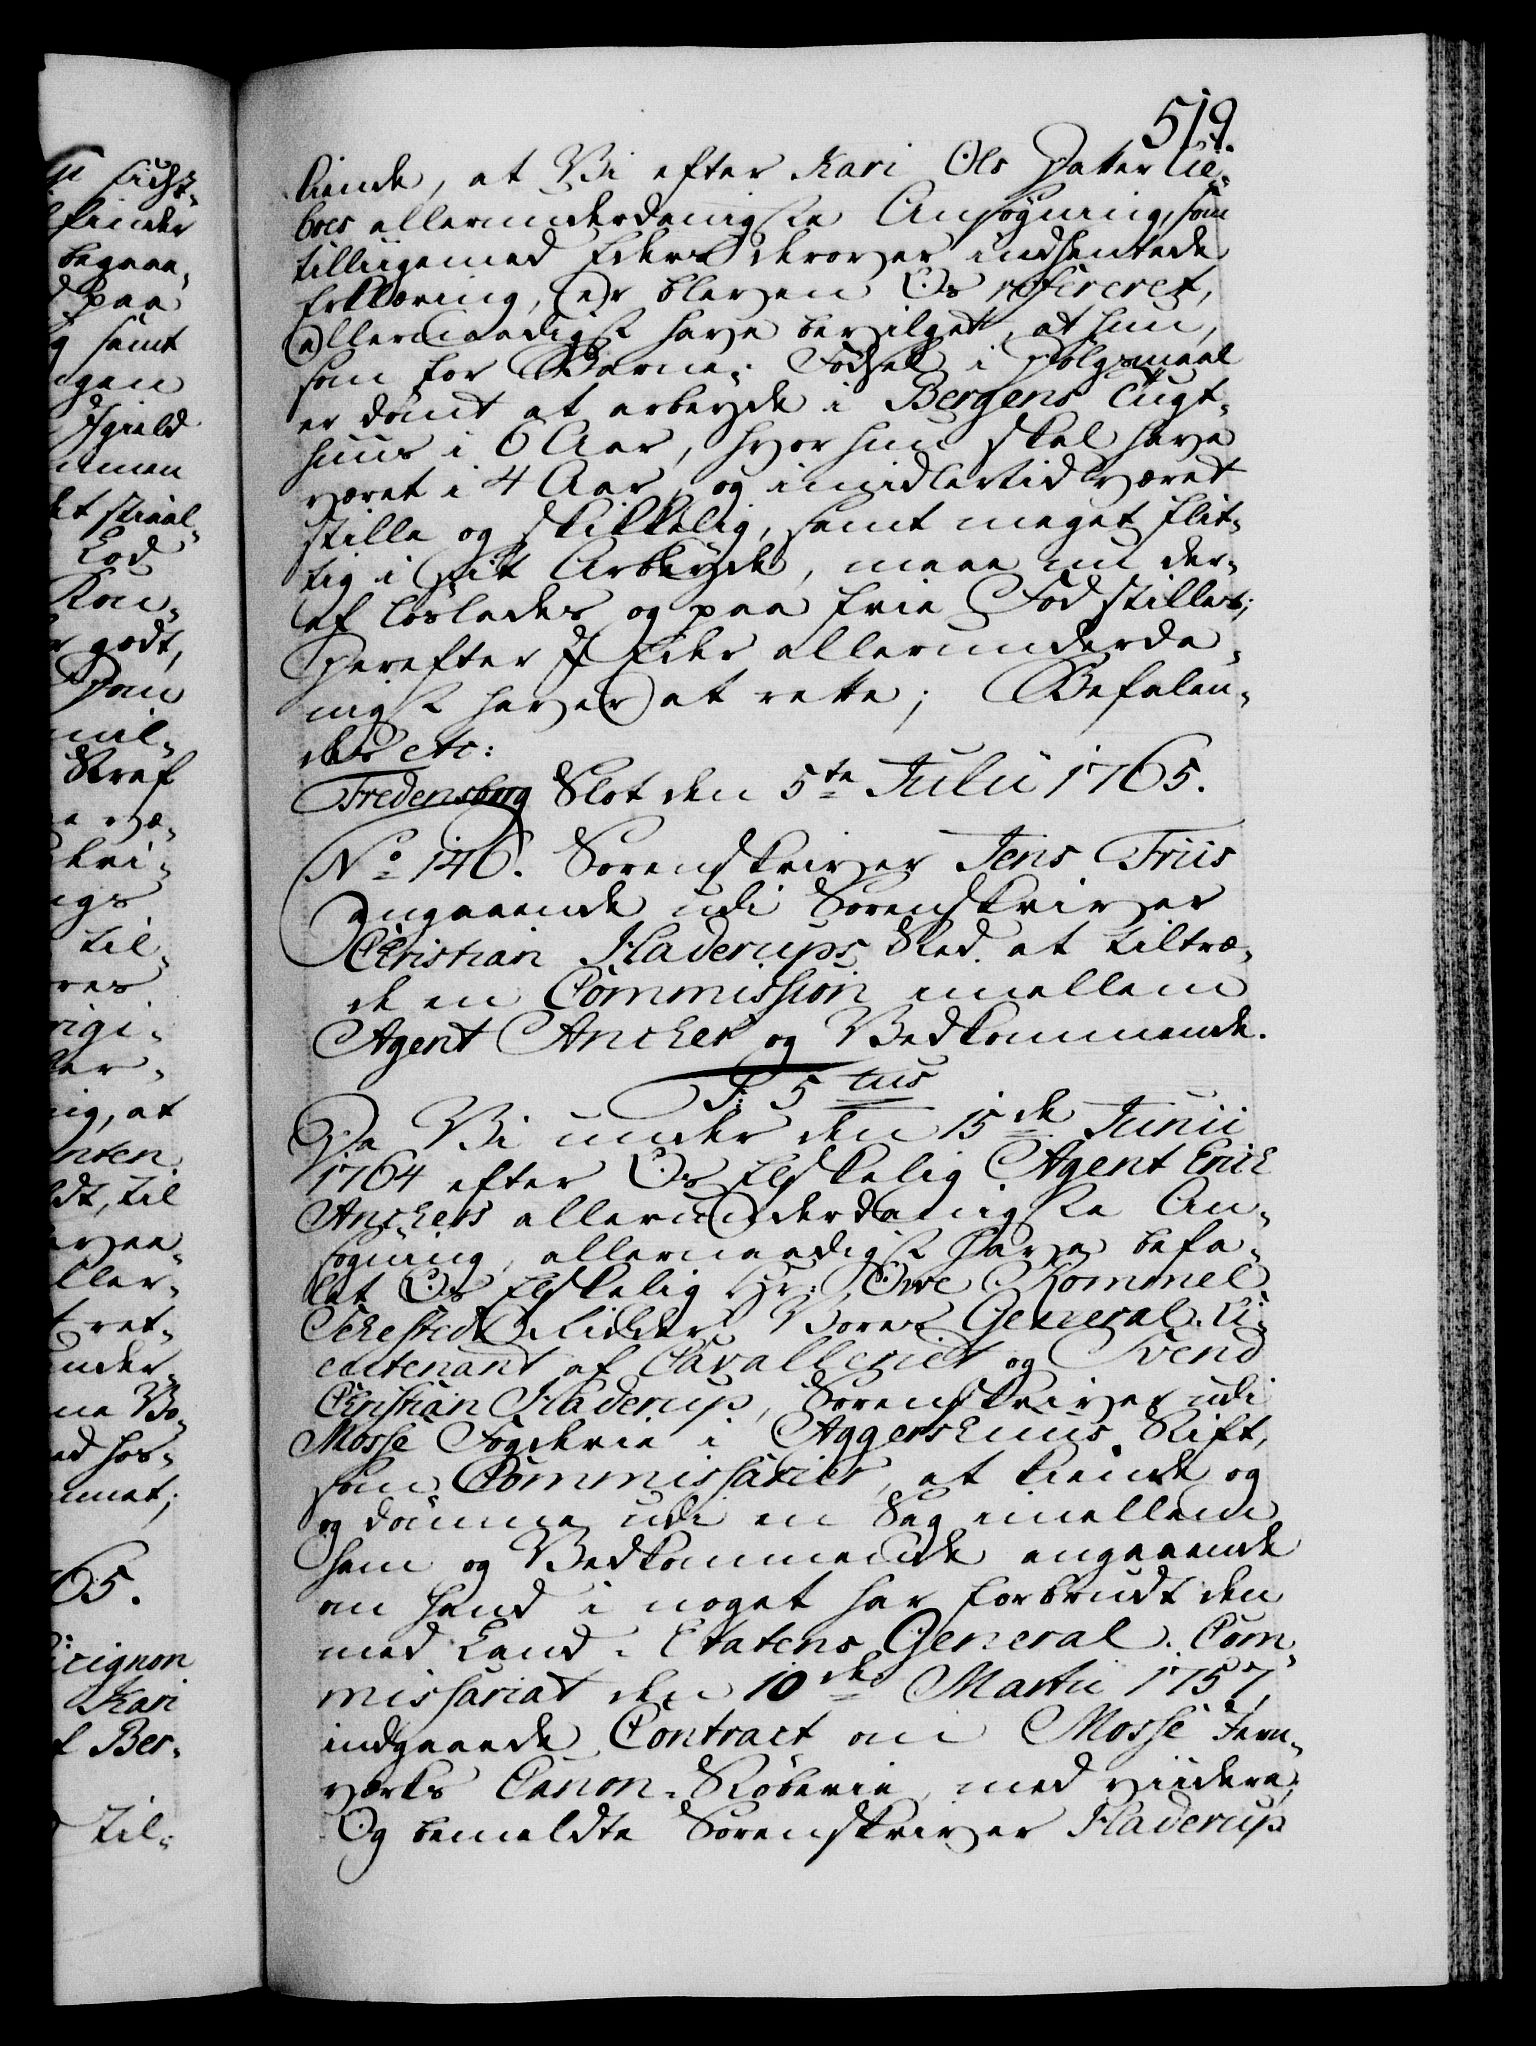 519.
kiende, at Vi efter Kari Ols Datter Tie-
bres allerunderdanigste Ansøgning, som
tilligemed Eders derover indhentede
Erklæring, er bleven Os refereret,
allernaadigst have bevilget, at hun,
som for Barne-Fødsel i Dølgsmaal
er dømt at arbeyde i Bergens Tugt-
huus i 6 Aar, hvor hun skal have
været i 4 Aar, og imidlertid været
stille og skikkelig, samt meget flit-
tig i sit Arbeyde, maae nu der-
af løslades og paa frie Fod stilles;
Herefter I Eder allerunderda-
nigst haver at rette; Befalen-
des etc:
Fredensborg Slot den 5te Julii 1765.
No 146. Sorenskriver Jens Friis
angaaende udi Sorenskriver
Christian Haderups Sted at tiltræ-
de en Commission imellem
Agent Ancher og Vedkommende.
F: 5tus
Da Vi under den 15de Junii
1764 efter Os Elskelig Agent Erich
Anchers allerunderdanigste An-
søgning, allernaadigst have befa-
let Os Elskelig Hr: Owe Rommel
Sehested Ridder Vores General-Li-
eutenant af Cavalleriet og Svend
Christian Haderup, Sorenskriver udi
Mosse Fogderie i Aggershuus Stift,
som Commissarier, at kiende og
og dømme udi en Sag imellem
ham og Vedkommende angaaende
om hand i noget har forbrudt den
med Land-Etatens General-Com-
missariat den 10de Martii 1757,
indgaaede Contract om Mosse Jern-
værks Canon-Støberie, med viidere;
Og bemeldte Sorenskriver Haderup